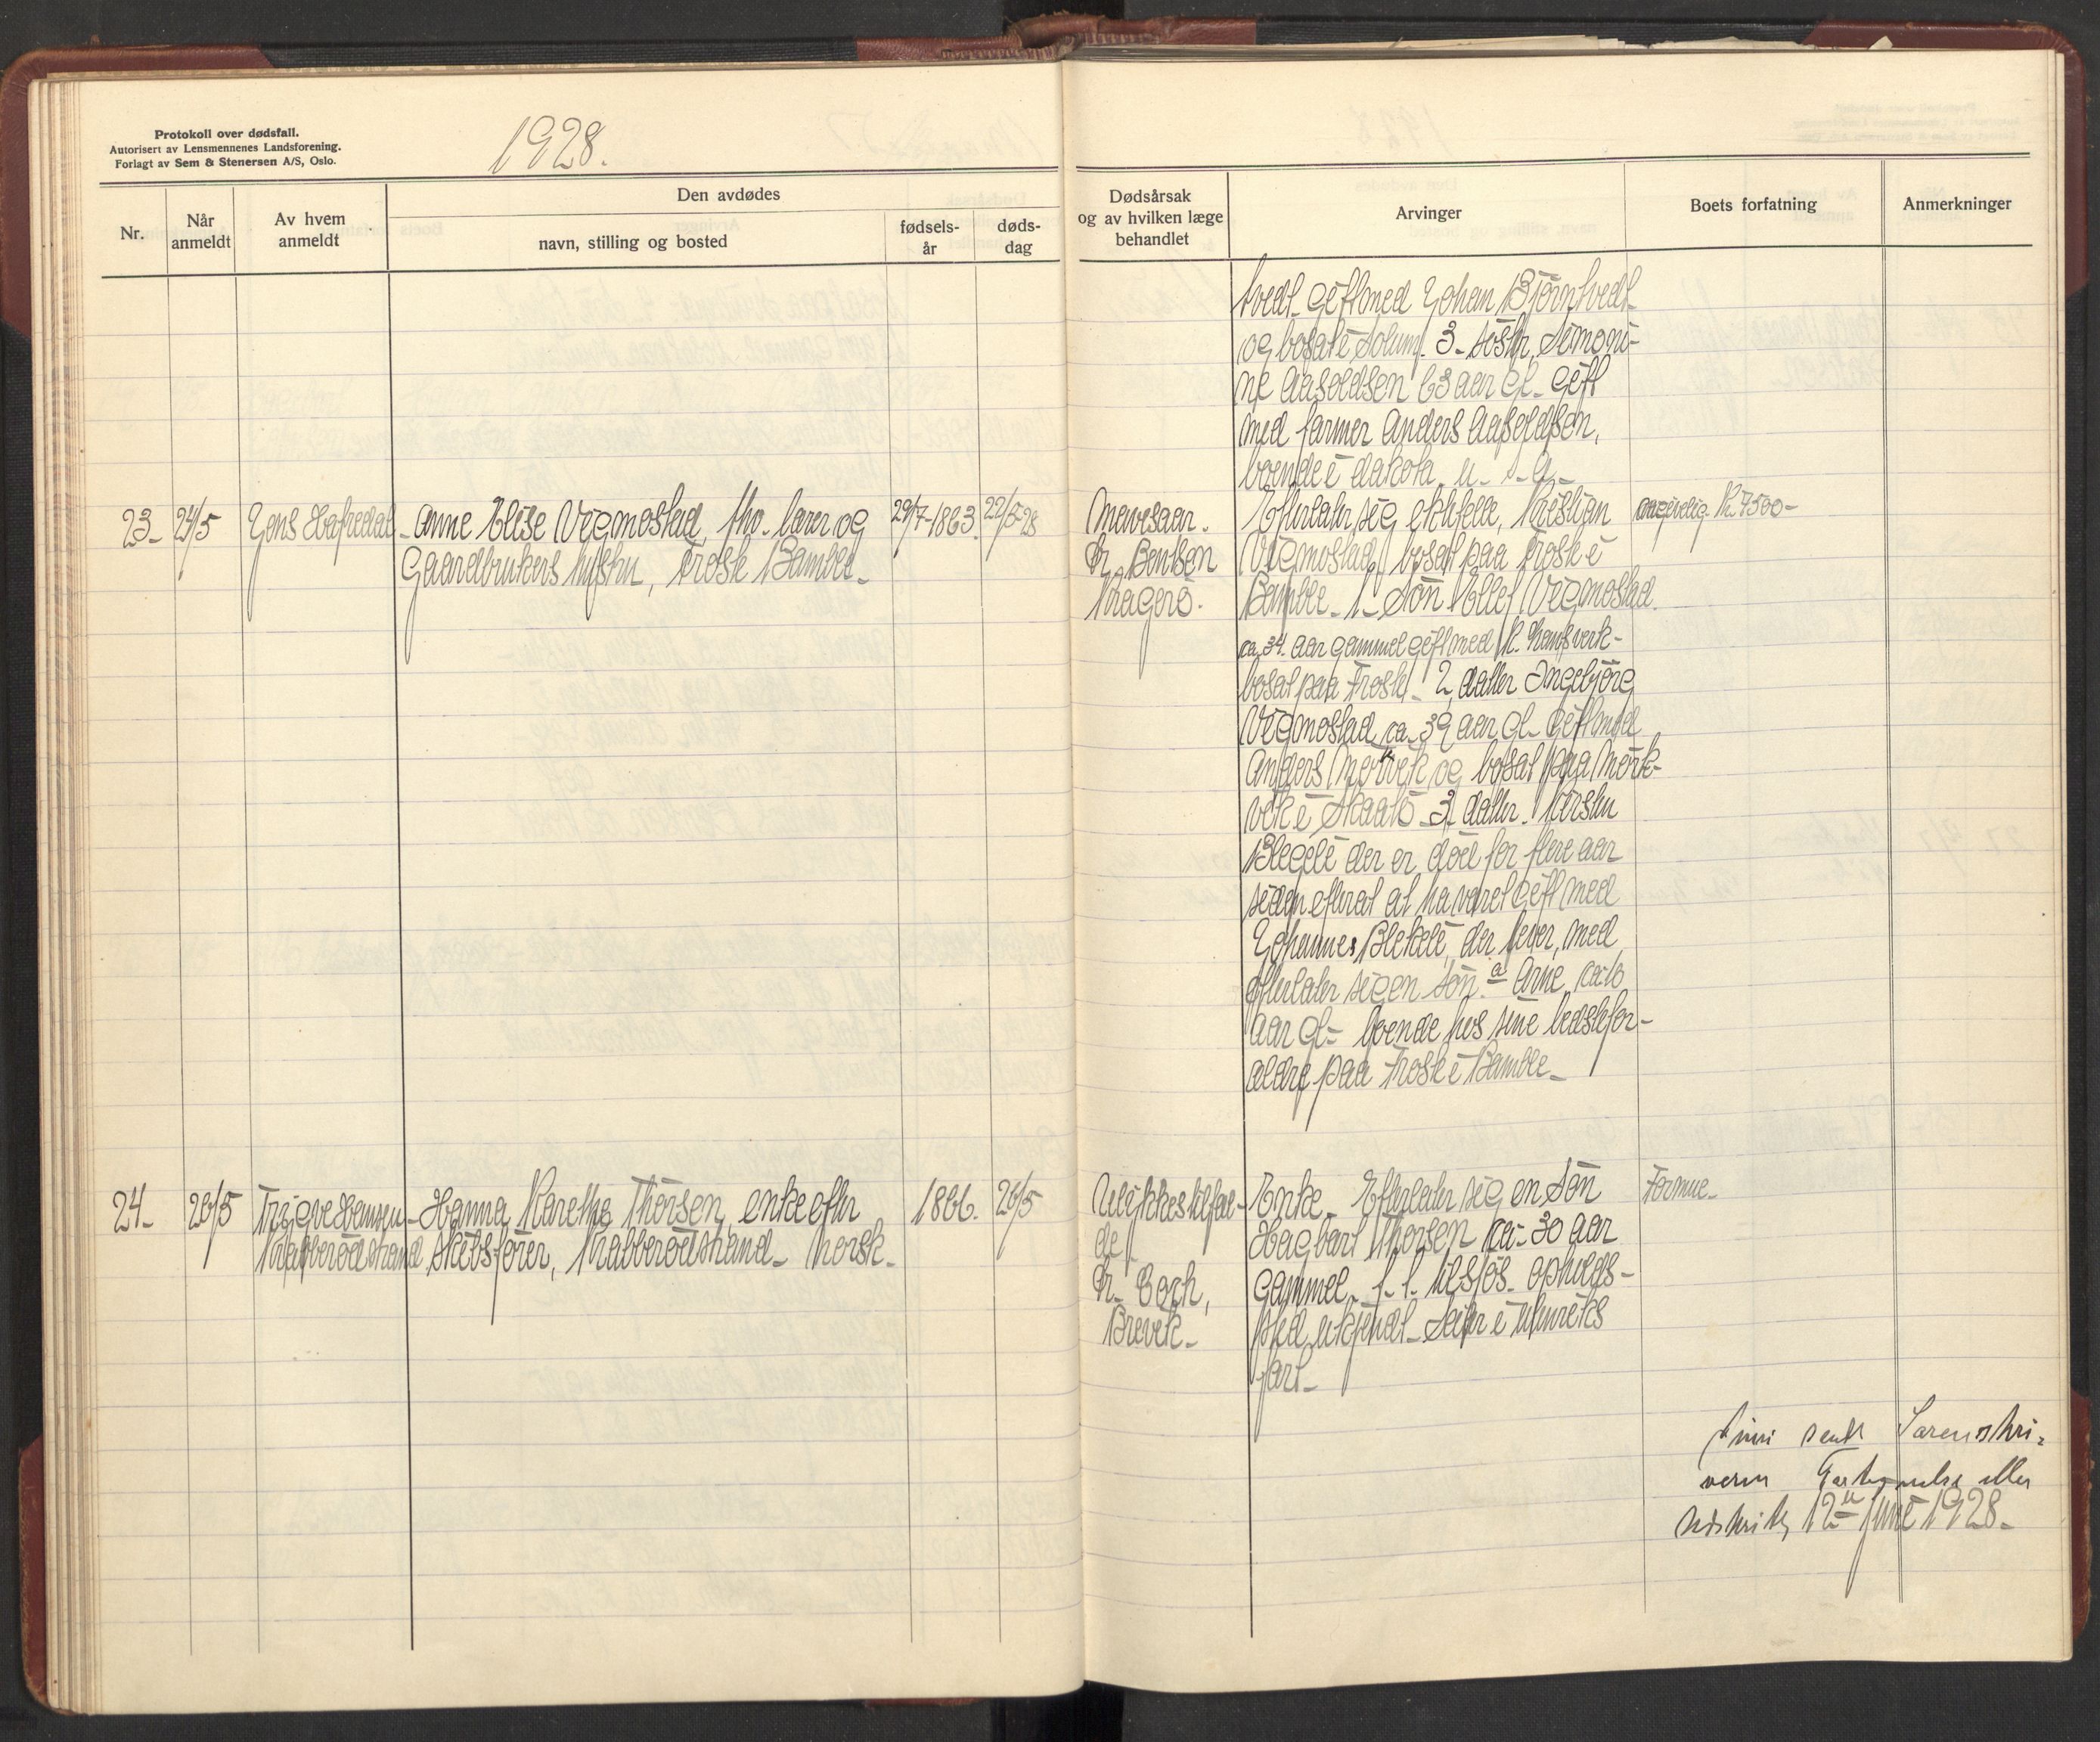 Protokoll over dødsfall.
Autorisert av Lensmennenes Landsforening.
Forlagt av Sem & Stenersen A/S, Oslo.
1928.
Nr.
Når
anmeldt
Av hvem
anmeldt
Den avdødes
navn, stilling og bosted
fødsels-
år
døds-
dag
Dødsårsak
og av hvilken læge
behandlet
Arvinger
Boets forfatning
Anmerkninger
tvedt gift med Johan Bjørntvedt
og bosat i Solum. 3. søster, Simoni-
ne Aasoldsen 63 aar gl. gift
med farmer Anders Aasoldsen,
boende i dakota. u. s. a.
23. 24/5 Jens Hafredal
Anne Elise Vigmostad, fhv. lærer og
Gaardbrukers hustru, Trosk Bamble.
29/7-1863. 22/5-28
Mavesaar.
Dr. Bentsen
Kragerø.
Efterlater sig ektefelle, Kristian
Vigmostad, bosat paa Trosk i
Bamble. 1. Søn Vigmostad.
ca. 34. aar gammel gift med K.
bosat paa Trosk. 2, datter Ingebjørg
Vigmostad, ca. 39 aar gl. gift med
Anders Mørkvik og bosat paa Mørk-
vik i Skaatø. 3. datter. Kirsten
Blegeli der er død for flere aar
siden efterat at ha været gift med
Johannes Blekeli, der lever, med
efterlater sig en søn. a Arne ca 10
aar gl. boende hos sine bedstefor-
ældre paa Trosk i Bamble.
angivelig Kr. 7500-
24. 26/5 Trygve Hansen
Krabberødstrand
Hanna Karethe Thorsen, enke efter
skibsfører, Krabberødstrand. Norsk.
1866. 26/5
Ulykkestilfæl-
de
Dr. Borch,
Brevik.
Enke. Efterlater sig en Søn
Hagbart Thorsen ca. 30 aar
gammel. f. t. tilsjøs. opholds-
sted ukjendt. Seiler i utenriks
fart.
Formue.
sendt Sorenskri-
veren eller
12te juni 1928.